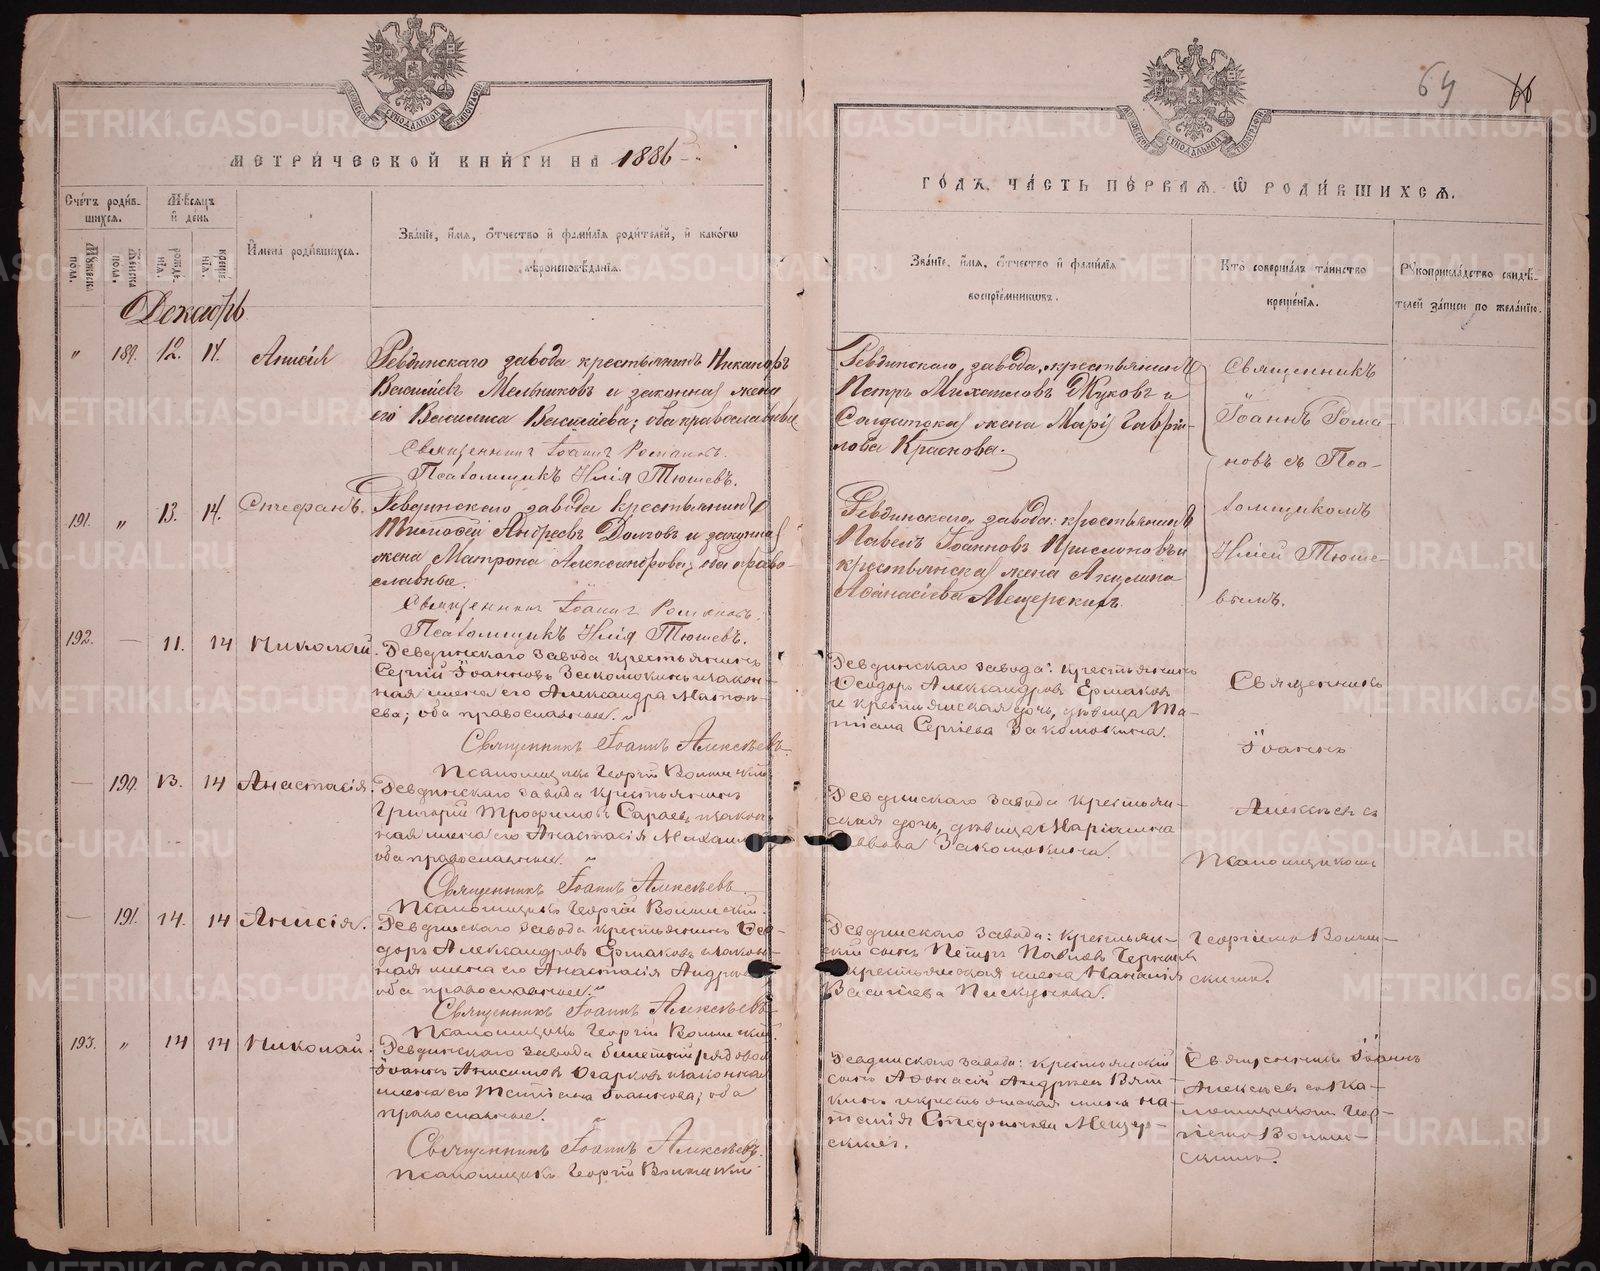 64 66
МЕТРИ́ЧЕСКОЙ КНИ́ГИ НА 1886
ГО́ДЪ, ЧА́СТЬ ПЕ́РВАЯ, Ѡ РОДИ́ВШИХСЯ.
Сче́тъ роди́в-
шихся.
Мѣ́сяцъ
и̑ день
Мꙋ́жеска
пола.
Же́нска
пола.
рожде-
нїѧ.
креще-
нїѧ.
И҆мена роди́вшихся.
Зва́нїе, и҆́мя, о҆́тчество и҆ фами́лїя роди́телей, и҆ како́гѡ
вѣроисповѣ́данїя.
Зва́нїе, и҆́мя, о҆́тчество и҆ фами́лїя
воспрїе́мникѡвъ.
Кто̀ соверша́лъ та́инство
креще́нїя.
Рꙋкоприкла́дство свидѣ́-
телей за́писи по жела́нїю.
Декабрь
" 189. 12. 14. Анисія
Ревдинскаго завода крестьянинъ Никаноръ
Васильевъ Мельниковъ и законная жена
его Василиса Васильева; оба православные
Священникъ Іоаннъ Романовъ.
Псаломщикъ Илія Тюшевъ.
Ревдинскаго завода, крестьянинъ
Петръ Михаиловъ Жуковъ и
Солдатская жена Марія Гаврі-
лова Краснова.
Священникъ
Іоаннъ Рома-
новъ съ Пса-
ломщикомъ
Иліей Тюше-
вымъ.
191. " 13. 14. Стефанъ.
Ревдинскаго завода крестьянинъ
Тимофей Андреевъ Долговъ и законная
жена Матрона Александрова; оба право-
славные.
Священникъ Іоаннъ Романовъ.
Псаломщикъ Илія Тюшевъ.
Ревдинскаго завода: крестьянинъ
Павелъ Іоанновъ и
крестьянская жена Акулина
Афанасіева Мещерскихъ.
192. — 11. 14 Николай.
Ревдинскаго завода крестьянинъ
Сергій Іоанновъ Закомокинъ и закон-
ная жена его Александра
оба православные.
Священникъ Іоаннъ Алексѣевъ.
Псаломщикъ Георгій
Ревдинскаго завода: крестьянинъ
Ѳеодоръ Александровъ Ермаковъ
и крестьянская дочь, дѣвица Та-
тіана Сергіева Закомокина.
Священникъ
Іоаннъ
Алексѣевъ съ
Псаломщикомъ
— 190. 13. 14 Анастасія.
Ревдинскаго завода крестьянинъ
Григорій Трофимовъ Сараевъ и закон-
ная жена его Анастасія
оба православные.
Священникъ Іоаннъ Алексѣевъ.
Псаломщикъ Георгій
Ревдинскаго завода крестьян-
ская дочь, дѣвица Маріамна
Саввова Закомокина.
— 191. 14. 14 Анисія.
Ревдинскаго завода крестьянинъ Ѳео-
доръ Александровъ Ермаковъ и закон-
ная жена его Анастасія
оба православные.
Священникъ Іоаннъ Алексѣевъ
Псаломщикъ Георгій
Ревдинскаго завода: крестьян-
скій сынъ Петръ Павловъ
и крестьянская жена Наталія
Васильева Пискунова.
Георгіемъ
193. " 14 14 Николай.
Ревдинскаго завода билетный рядовой
Іоаннъ Анисимовъ Огарковъ и законная
жена его Татіана Іоаннова; оба
православные.
Священникъ Іоаннъ Алексѣевъ.
Псаломщикъ Георгій
Ревдинскаго завода: крестьянскій
сынъ Афанасій Андреевъ Вят-
кинъ и крестьянская жена На-
талія Стефанова Мещер-
скихъ.
Священникъ Іоаннъ
Алексѣевъ съ Пса-
ломщикомъ Геор-
гіемъ
METRIKI.GASO-URAL.RU